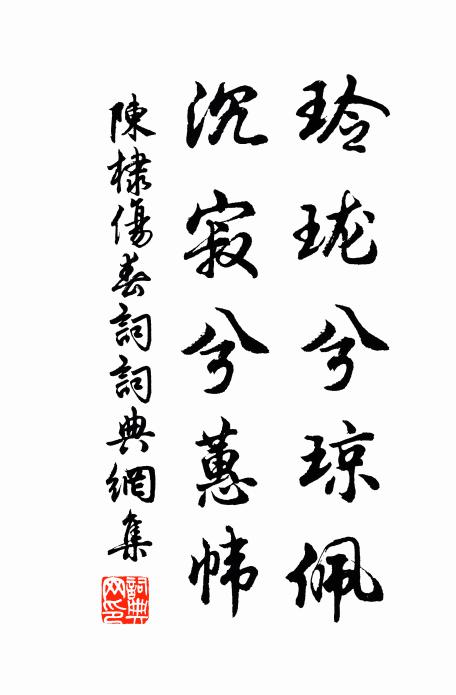 玲珑兮琼佩
沉寂兮蕙帏
陳棣傷春詞詞典網集
詞典网印